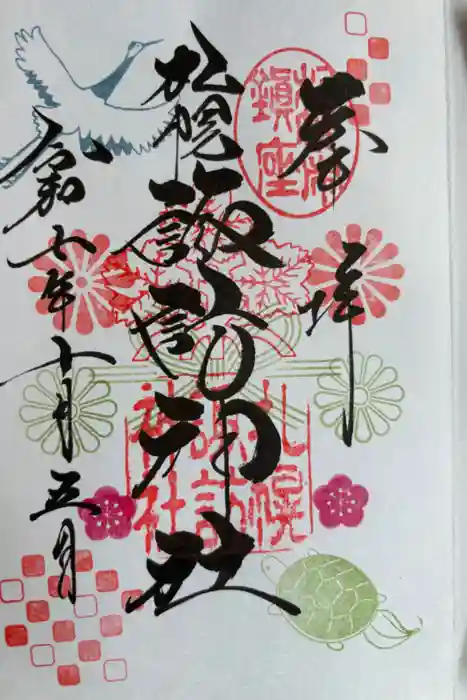 奉拝
札幌
鎮座
札幌諏訪神社
札幌
諏訪
神社
令和六年十月五日